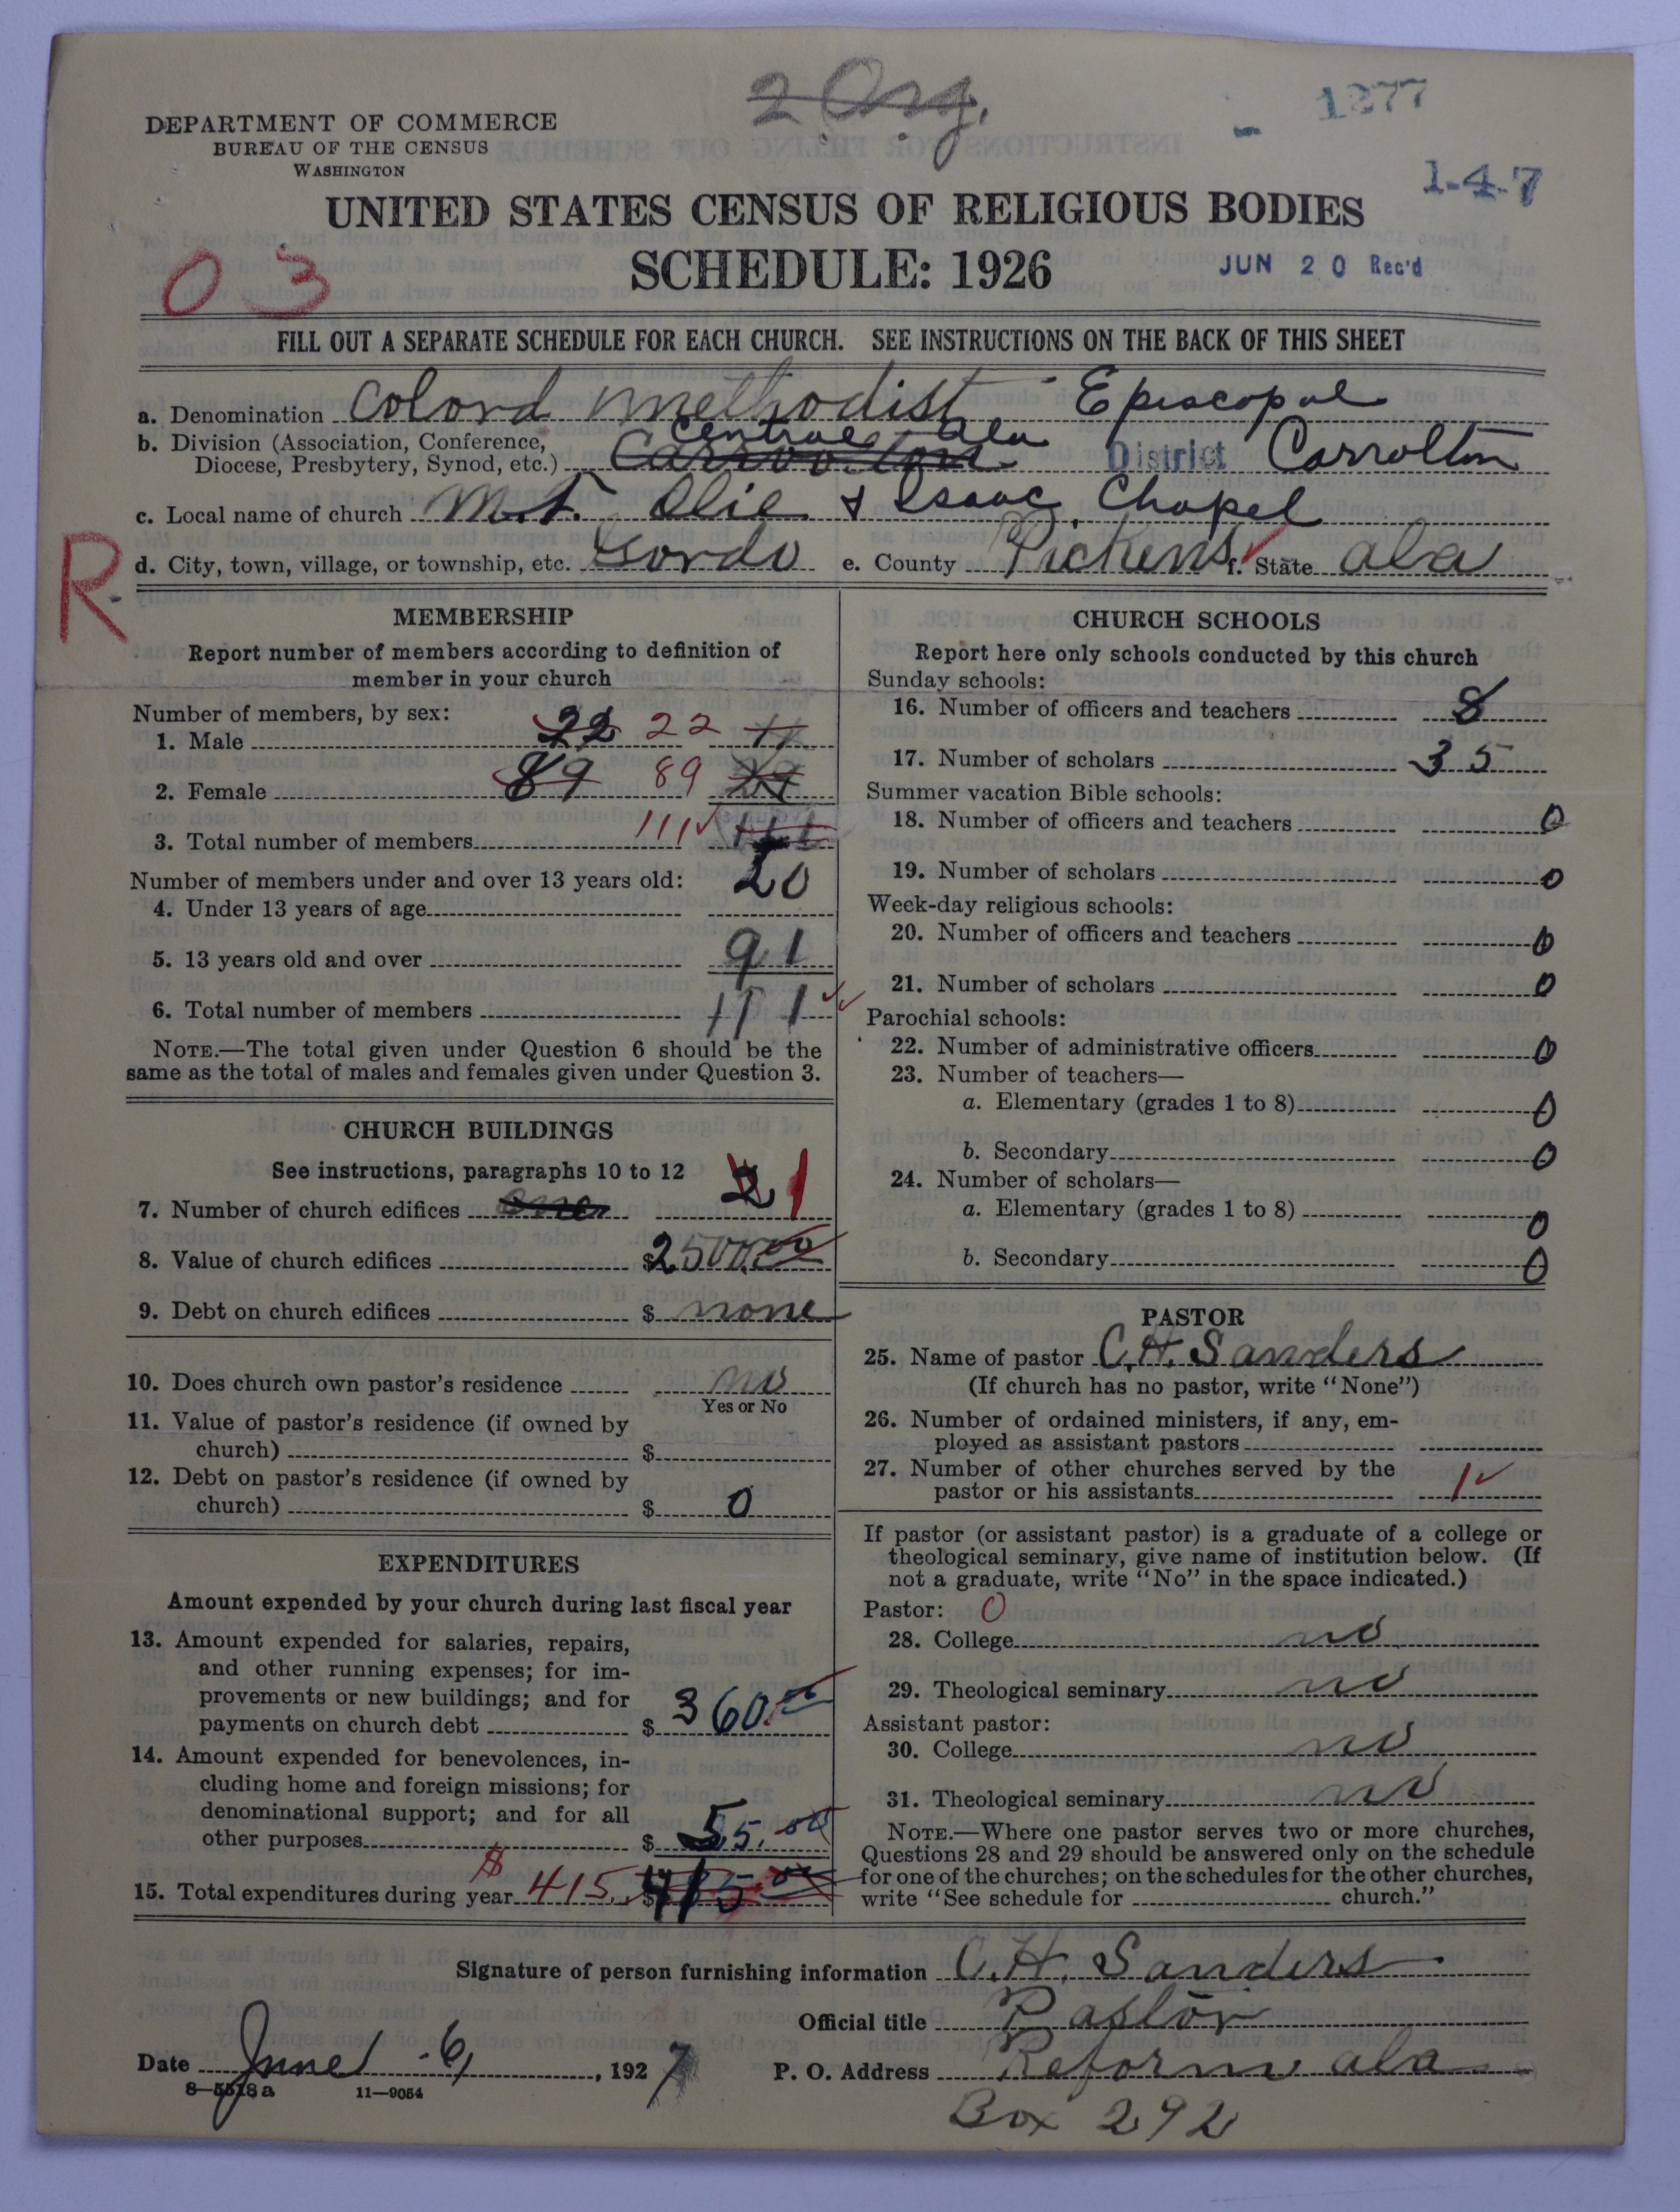 2 Org.
1277
DEPARTMENT OF COMMERCE
BUREAU OF THE CENSUS
WASHINGTON
1-4-7
UNITED STATES CENSUS OF RELIGIOUS BODIES
SCHEDULE: 1926
JUN 20 Rec'd
03
FILL OUT A SEPARATE SCHEDULE FOR EACH CHURCH. SEE INSTRUCTIONS ON THE BACK OF THIS SHEET
a. Denomination Colord Methodist Episcopal
b. Division (Association, Conference, Central Ala
Diocese, Presbytery, Synod, etc.) Carrollton District Carrollton
c. Local name of church Mt. Olie & Isaac Chapel
R
d. City, town, village, or township, etc. Gordo e. County Pickens f. State Ala
MEMBERSHIP
Report number of members according to definition of
member in your church
Number of members, by sex:
1. Male 22 22 11
2. Female 89 89
3. Total number of members 111 111
Number of members under and over 13 years old:
4. Under 13 years of age 20
5. 13 years old and over 91
6. Total number of members 111
NOTE.—The total given under Question 6 should be the
same as the total of males and females given under Question 3.
CHURCH BUILDINGS
See instructions, paragraphs 10 to 12
7. Number of church edifices one 2 1
8. Value of church edifices $2500.00
9. Debt on church edifices $ none
10. Does church own pastor's residence no
Yes or No
11. Value of pastor's residence (if owned by
church) $
12. Debt on pastor's residence (if owned by
church) $ 0
EXPENDITURES
Amount expended by your church during last fiscal year
13. Amount expended for salaries, repairs,
and other running expenses; for im-
provements or new buildings; and for
payments on church debt $ 360.00
14. Amount expended for benevolences, in-
cluding home and foreign missions; for
denominational support; and for all
other purposes $ 55.00
15. Total expenditures during year $ 415. $ 415.00
CHURCH SCHOOLS
Report here only schools conducted by this church
Sunday schools:
16. Number of officers and teachers 8
17. Number of scholars 35
Summer vacation Bible schools:
18. Number of officers and teachers 0
19. Number of scholars 0
Week-day religious schools:
20. Number of officers and teachers 0
21. Number of scholars 0
Parochial schools:
22. Number of administrative officers 0
23. Number of teachers—
a. Elementary (grades 1 to 8) 0
b. Secondary 0
24. Number of scholars—
a. Elementary (grades 1 to 8) 0
b. Secondary 0
PASTOR
25. Name of pastor C. H. Sanders
(If church has no pastor, write "None")
26. Number of ordained ministers, if any, em-
ployed as assistant pastors
27. Number of other churches served by the
pastor or his assistants 1
If pastor (or assistant pastor) is a graduate of a college or
theological seminary, give name of institution below. (If
not a graduate, write "No" in the space indicated.)
Pastor: 0
28. College no
29. Theological seminary no
Assistant pastor:
30. College no
31. Theological seminary no
NOTE.—Where one pastor serves two or more churches,
Questions 28 and 29 should be answered only on the schedule
for one of the churches; on the schedules for the other churches,
write "See schedule for church."
Signature of person furnishing information C. H. Sanders
Official title Pastor
Date June 6, 1927 P. O. Address Reform ala
8—5518a 11—9054
Box 292